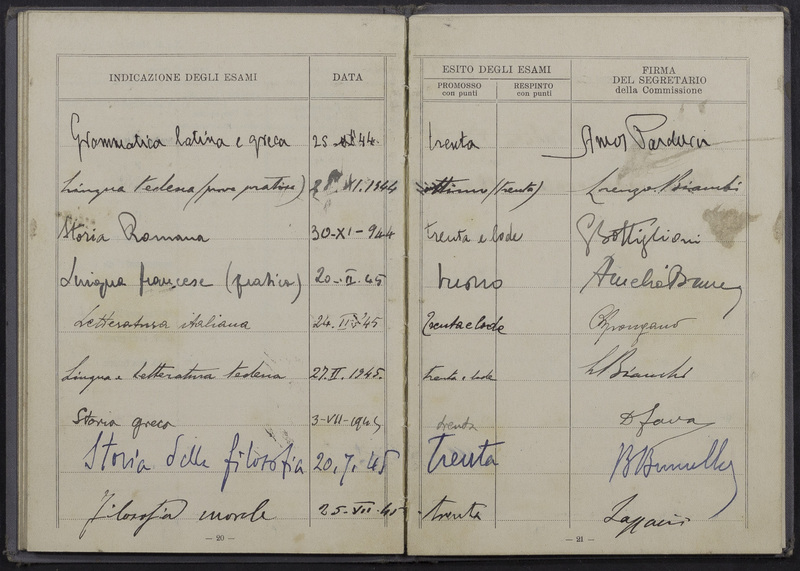 INDICAZIONE DEGLI ESAMI DATA
ESITO DEGLI ESAMI
PROMOSSO con punti
RESPINTO con punti
FIRMA DEL SEGRETARIO della Commissione
Grammatica latina e greca 25 44. trenta Amos Parducci
Lingua tedesca (prova pratica) XI.1944 ottimo (trenta) Lorenzo Bianchi
Storia Romana 30-XI-944 trenta e lode GBottiglioni
Lingua francese (pratica) 20-II-45 buono
Letteratura italiana 24. 45 Trenta e lode
Lingua e letteratura tedesca 27.II.1945. trenta e lode L Bianchi
Storia greca 3-VII-1945 trenta
Storia della filosofia 20.7.45 trenta
Filosofia morale 25-VII-45 trenta
— 20 —
— 21 —